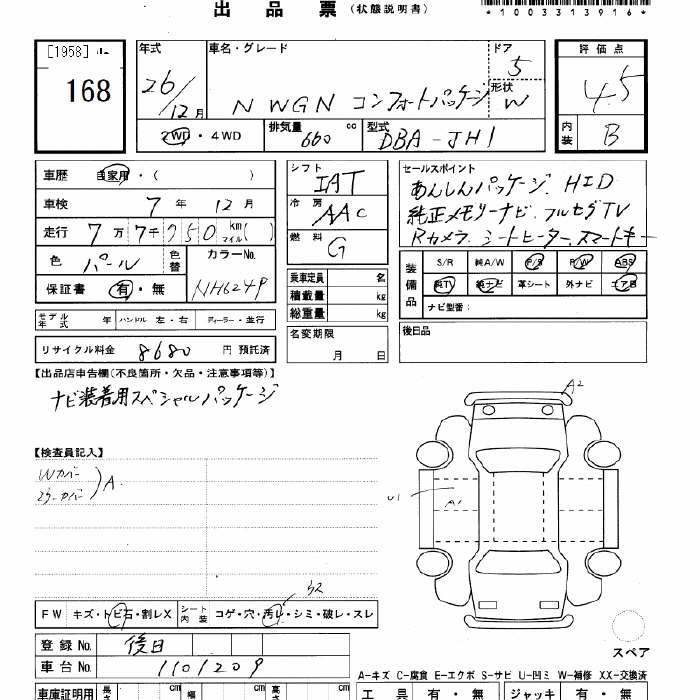 出品票 (状態説明書)
*1003313916*
[1958] 168
年式 26/12月
車名・グレード N WGN コンフォートパッケージ
ドア 5
形状 W
評価点 4.5
内装 B
2WD・4WD
排気量 660 cc
型式 DBA-JH1
車歴 自家用・( )
車検 7年 12月
走行 7万7千750 km マイル( )
色 パール 色替 カラーNo. NH624P
保証書 有・無
シフト IAT
冷房 AAC
燃料 G
セールスポイント
あんしんパッケージ. HID
純正メモリーナビ. フルセグTV
Rカメラ. シートヒーター. スマートキー
装備品 S/R 純A/W P/S P/W ABS
純TV 純ナビ 革シート 外ナビ エアB
ナビ型番:
モデル年式 年 ハンドル 左・右 ディーラー・並行
乗車定員 名
積載量 kg
総重量 kg
リサイクル料金 8680 円 預託済
名変期限 月 日
後日品
【出品店申告欄(不良箇所・欠品・注意事項等)】
ナビ装着用スペシャルパッケージ
【検査員記入】
Wカバー
ミラーカバー
A
A2
U1
A1
S2
FW キズ・トビ石・割レX シート内装 コゲ・穴・汚レ・シミ・破レ・スレ
登録No. 後日
車台No. 1101209
スペア
A-キズ C-腐食 E-エクボ S-サビ U-凹ミ W-補修 XX-交換済
車庫証明用 長さ cm 幅 cm 高さ cm
工具 有・無 ジャッキ 有・無